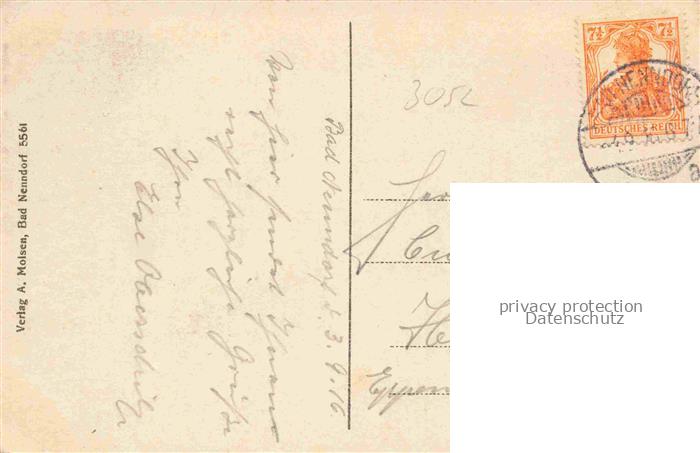 Verlag A. Molsen, Bad Nenndorf 5561
Bad Nenndorf d. 3.9.16
Von hier sendet Ihnen
recht herzliche Grüße
Ihre
Else
3052
7½ 7½
DEUTSCHES REICH
NENNDORF
He
Eppen
privacy protection
Datenschutz